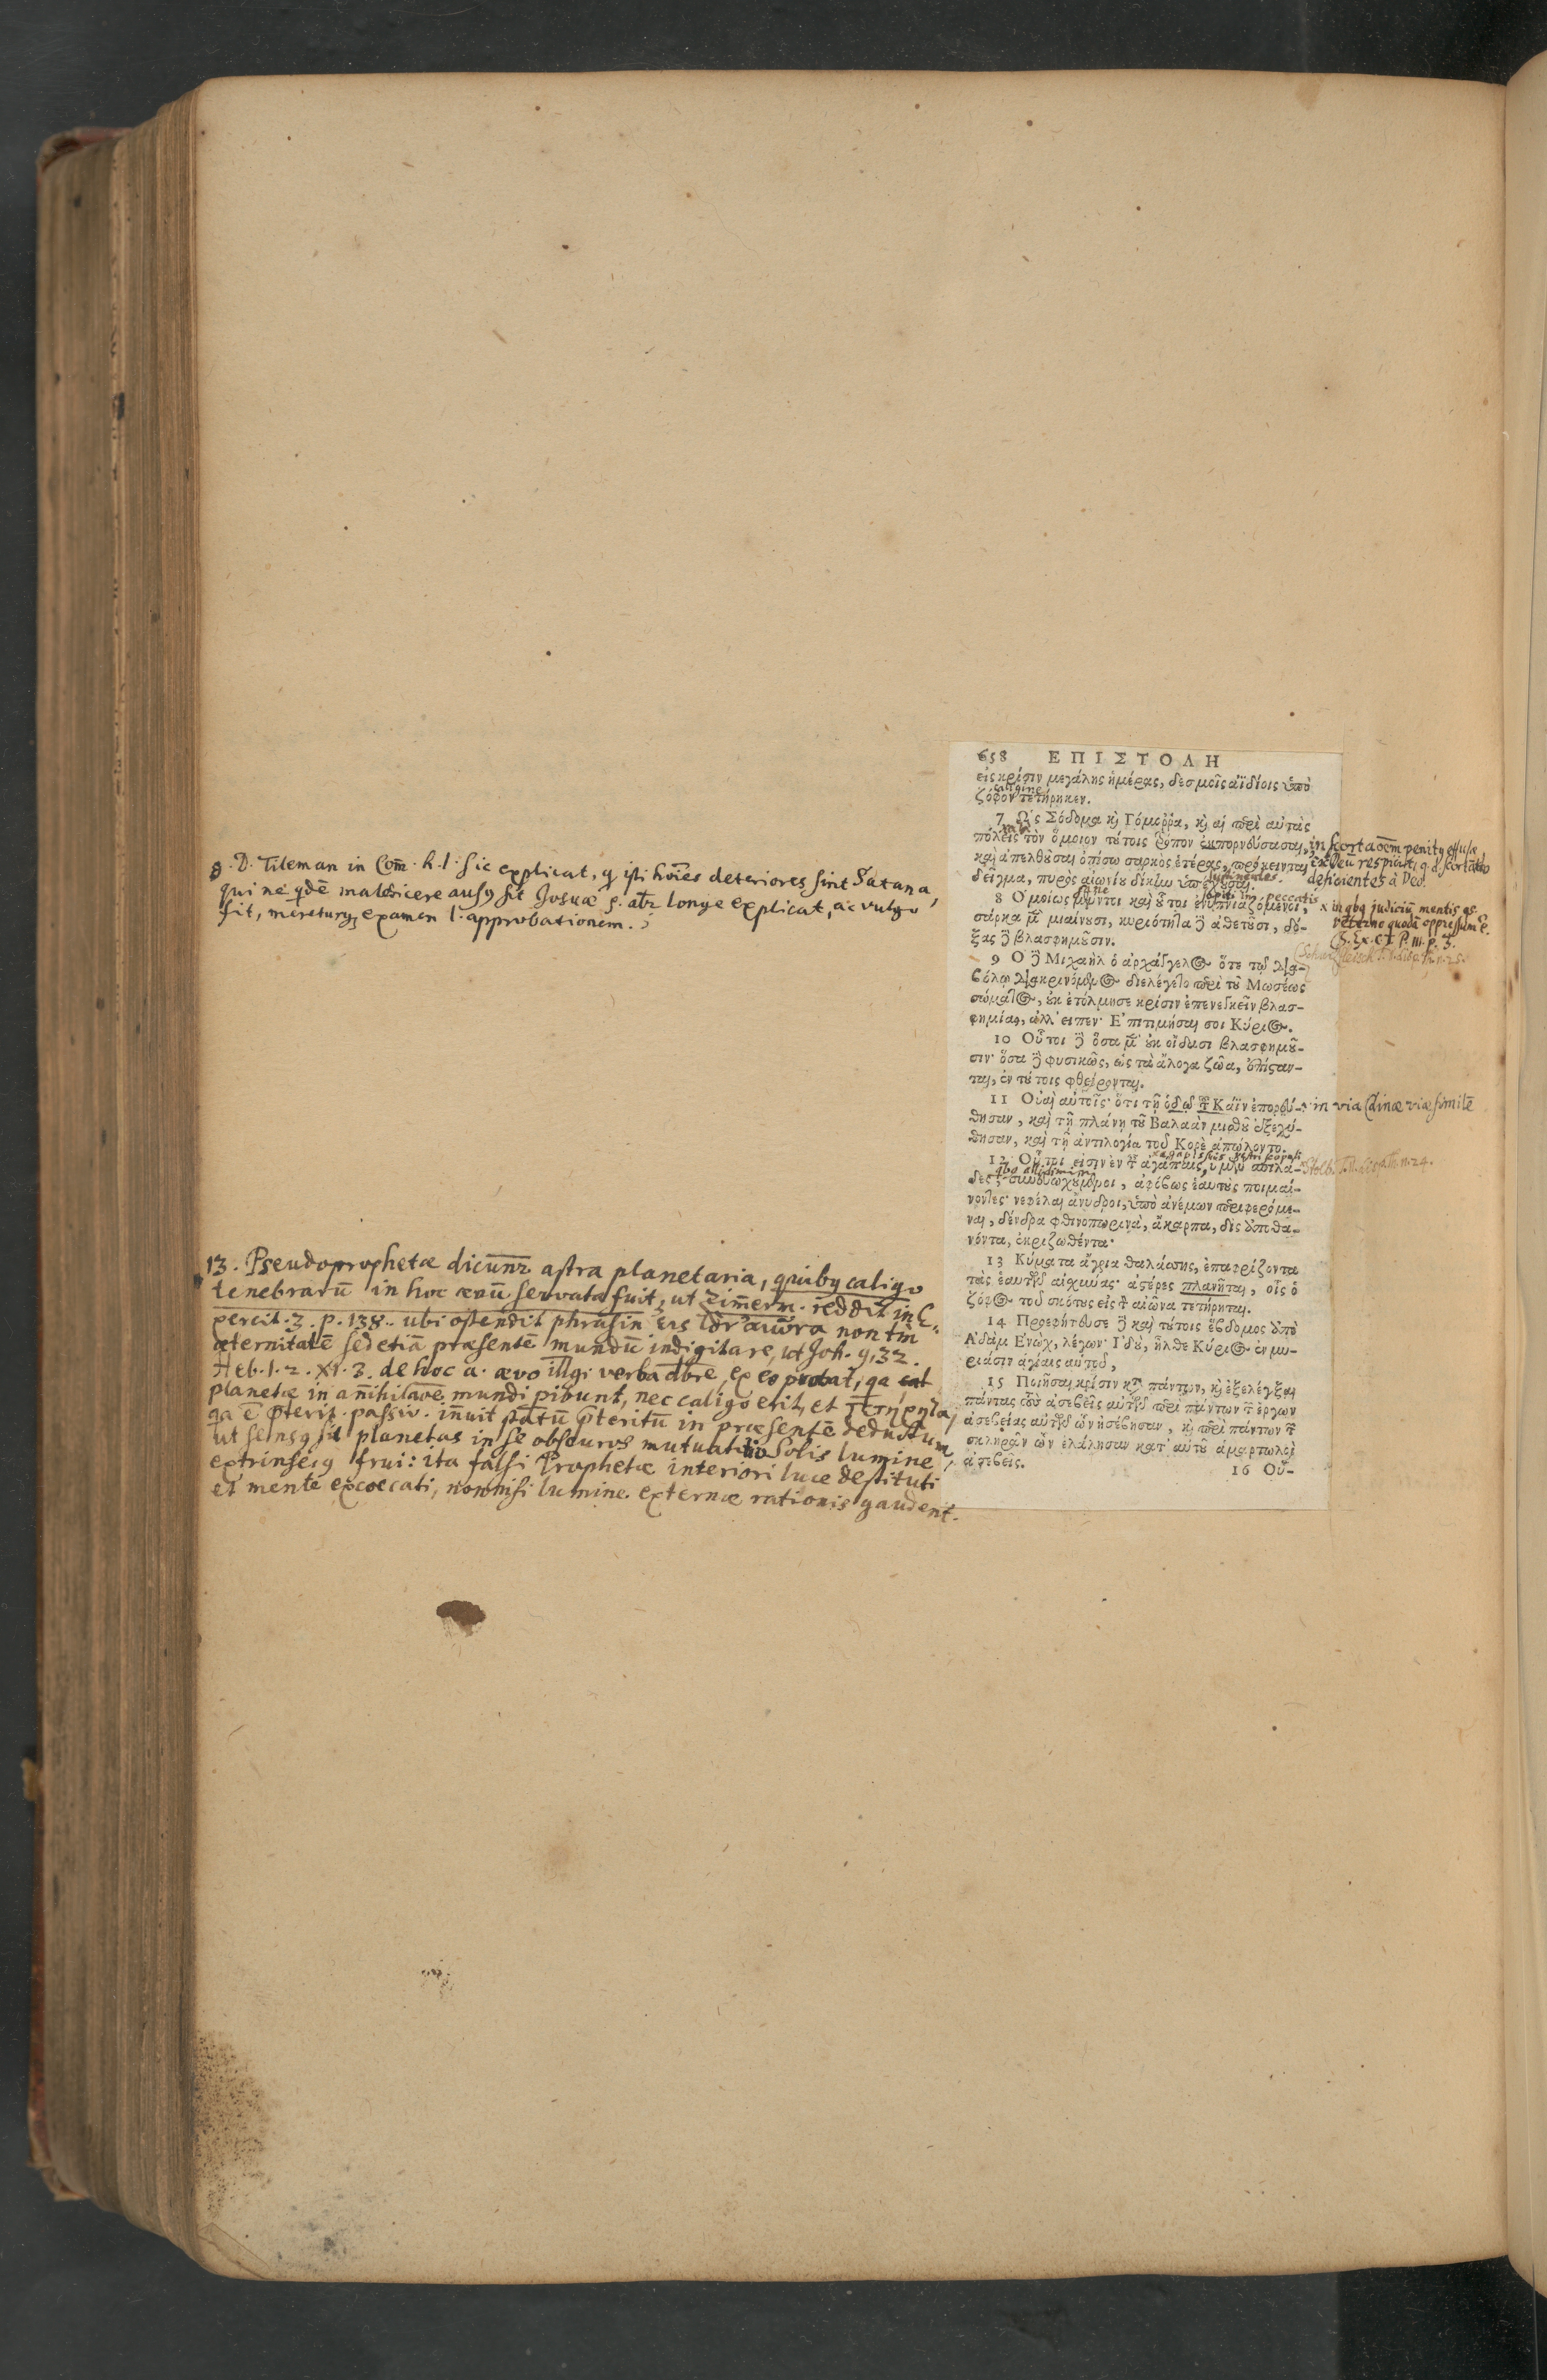 8. D. Tileman in Com̄. h. l. sic explicat, q̨ isti hōies deteriores sint Satana,
qui ne qdē maledicere ausꝯ sit Josuæ
sit, examen l. approbationem.
658 ΕΠΙΣΤΟΛΗ
εἰς κρίσιν μεγάλης ἡμέρας, δεσμοῖς ἀϊδίοις ὑπὸ
caligine
ζόφον τετήρηκεν.
7 Ὡς Σόδομα κὶ Γόμοῤῥα, κὶ αἱ περὶ αὐτὰς
πόλεις τὸν ὅμοιον τύτοις τρόπον ἐκπορνεύσασαι,
καὶ ἀπελθοῦσαι ὀπίσω σαρκὸς ἑτέρας, πρόκεινται
δεῖγμα, πυρὸς αἰωνίου δίκην ὑπέχουσαι.
in scorta
deficientes à Deo.
8 Ὁμοίως μέντοι καὶ οὗτοι ἐνυπνιαζόμενοι,
σάρκα μὲν μιαίνουσι, κυριότητα δὲ ἀθετοῦσι, δό-
ξας δὲ βλασφημοῦσιν.
x in qbꝯ judiciū mentis
veterno quodā oppressum ē.
9 Ὁ δὲ Μιχαὴλ ὁ ἀρχάγγελος ὅτε τῷ δια-
βόλῳ διακρινόμενος διελέγετο περὶ τοῦ Μωσέως
σώματος, οὐκ ἐτόλμησε κρίσιν ἐπενεγκεῖν βλασ-
φημίας, ἀλλ' εἶπεν· Ἐπιτιμήσαι σοι Κύριος.
10 Οὗτοι δὲ ὅσα μὲν οὐκ οἴδασι βλασφημοῦ-
σιν· ὅσα δὲ φυσικῶς, ὡς τὰ ἄλογα ζῶα, ἐπίσταν-
ται, ἐν τούτοις φθείρονται.
11 Οὐαὶ αὐτοῖς· ὅτι τῇ ὁδῷ τοῦ Κάϊν ἐπορεύ-
θησαν, καὶ τῇ πλάνῃ τοῦ Βαλαὰμ μισθοῦ ἐξεχύ-
θησαν, καὶ τῇ ἀντιλογίᾳ τοῦ Κορὲ ἀπώλοντο.
in via Cainæ viæ similē
12 Οὗτοί εἰσιν ἐν ταῖς ἀγάπαις ὑμῶν σπιλά-
δες, συνευωχούμενοι, ἀφόβως ἑαυτοὺς ποιμαί-
νοντες· νεφέλαι ἄνυδροι, ὑπὸ ἀνέμων περιφερόμε-
ναι, δένδρα φθινοπωρινὰ, ἄκαρπα, δὶς ἀποθα-
νόντα, ἐκριζωθέντα·
13 Κύματα ἄγρια θαλάσσης, ἐπαφρίζοντα
τὰς ἑαυτῶν αἰσχύνας· ἀστέρες πλανῆται, οἷς ὁ
ζόφος τοῦ σκότους εἰς τὸν αἰῶνα τετήρηται.
14 Προεφήτευσε δὲ καὶ τούτοις ἕβδομος ἀπὸ
Ἀδὰμ Ἐνὼχ, λέγων· Ἰδοὺ, ἦλθε Κύριος ἐν μυ-
ριάσιν ἁγίαις αὑτοῦ,
15 Ποιῆσαι κρίσιν κατὰ πάντων, κὶ ἐξελέγξαι
πάντας τοὺς ἀσεβεῖς αὐτῶν περὶ πάντων τῶν ἔργων
ἀσεβείας αὐτῶν ὧν ἠσέβησαν, κὶ περὶ πάντων τῶν
σκληρῶν ὧν ἐλάλησαν κατ' αὐτοῦ ἁμαρτωλοὶ
ἀσεβεῖς.
16 Οὗ-
13. Pseudoprophetæ dicūnr astra planetaria, quibꝯ caligo
tenebrarū in hoc ævū servata fuit, ut Zim̄erm. reddit in E-
xercit. 3. p. 138. ubi ostendit phrasin εἰς τὸν αἰῶνα non tm̄
æternitatē sed etiā præsentē mundū indigitare, ut Joh. 9, 32.
Heb. 1. 2. XI. 3. de hoc a. ævo verba ex eo probat, qa
planetæ in an̄ihilaōe mundi pibunt, nec caligo erit, et τετήρηται,
qa ē p̄terit. passiv. in̄uit statū p̄teritū in præsentē deductum,
ut sensꝯ sit planetas in se obscuros mutuatitio Solis lumine
extrinsecꝯ frui: ita falsi Prophetæ interiori luce destituti
et mente excoecati, nonnisi lumine externæ rationis gaudent.